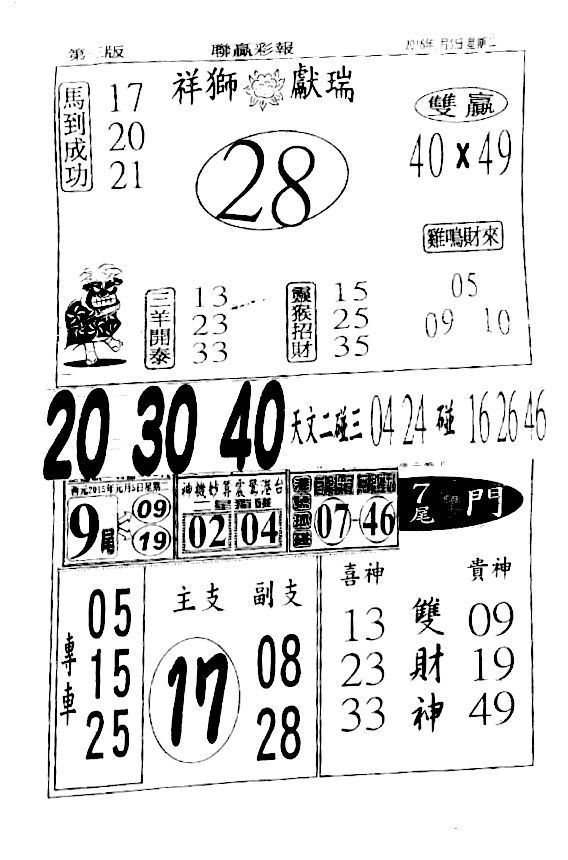 第二版 聯贏彩報 2016年 月5日星期二
祥獅獻瑞
馬到成功
17
20
21
28
雙贏
40 x 49
雞鳴財來
05
09 10
三羊開泰
13
23
33
靈猴招財
15
25
35
20 30 40 天文二碰三 04 24 碰 16 26 46
西元2015年元月5日星期二
9尾
09
19
神機妙算震驚港台
02 04
07-46
7尾
門
專車
05
15
25
主支 副支
17
08
28
喜神 貴神
雙財神
13 09
23 19
33 49